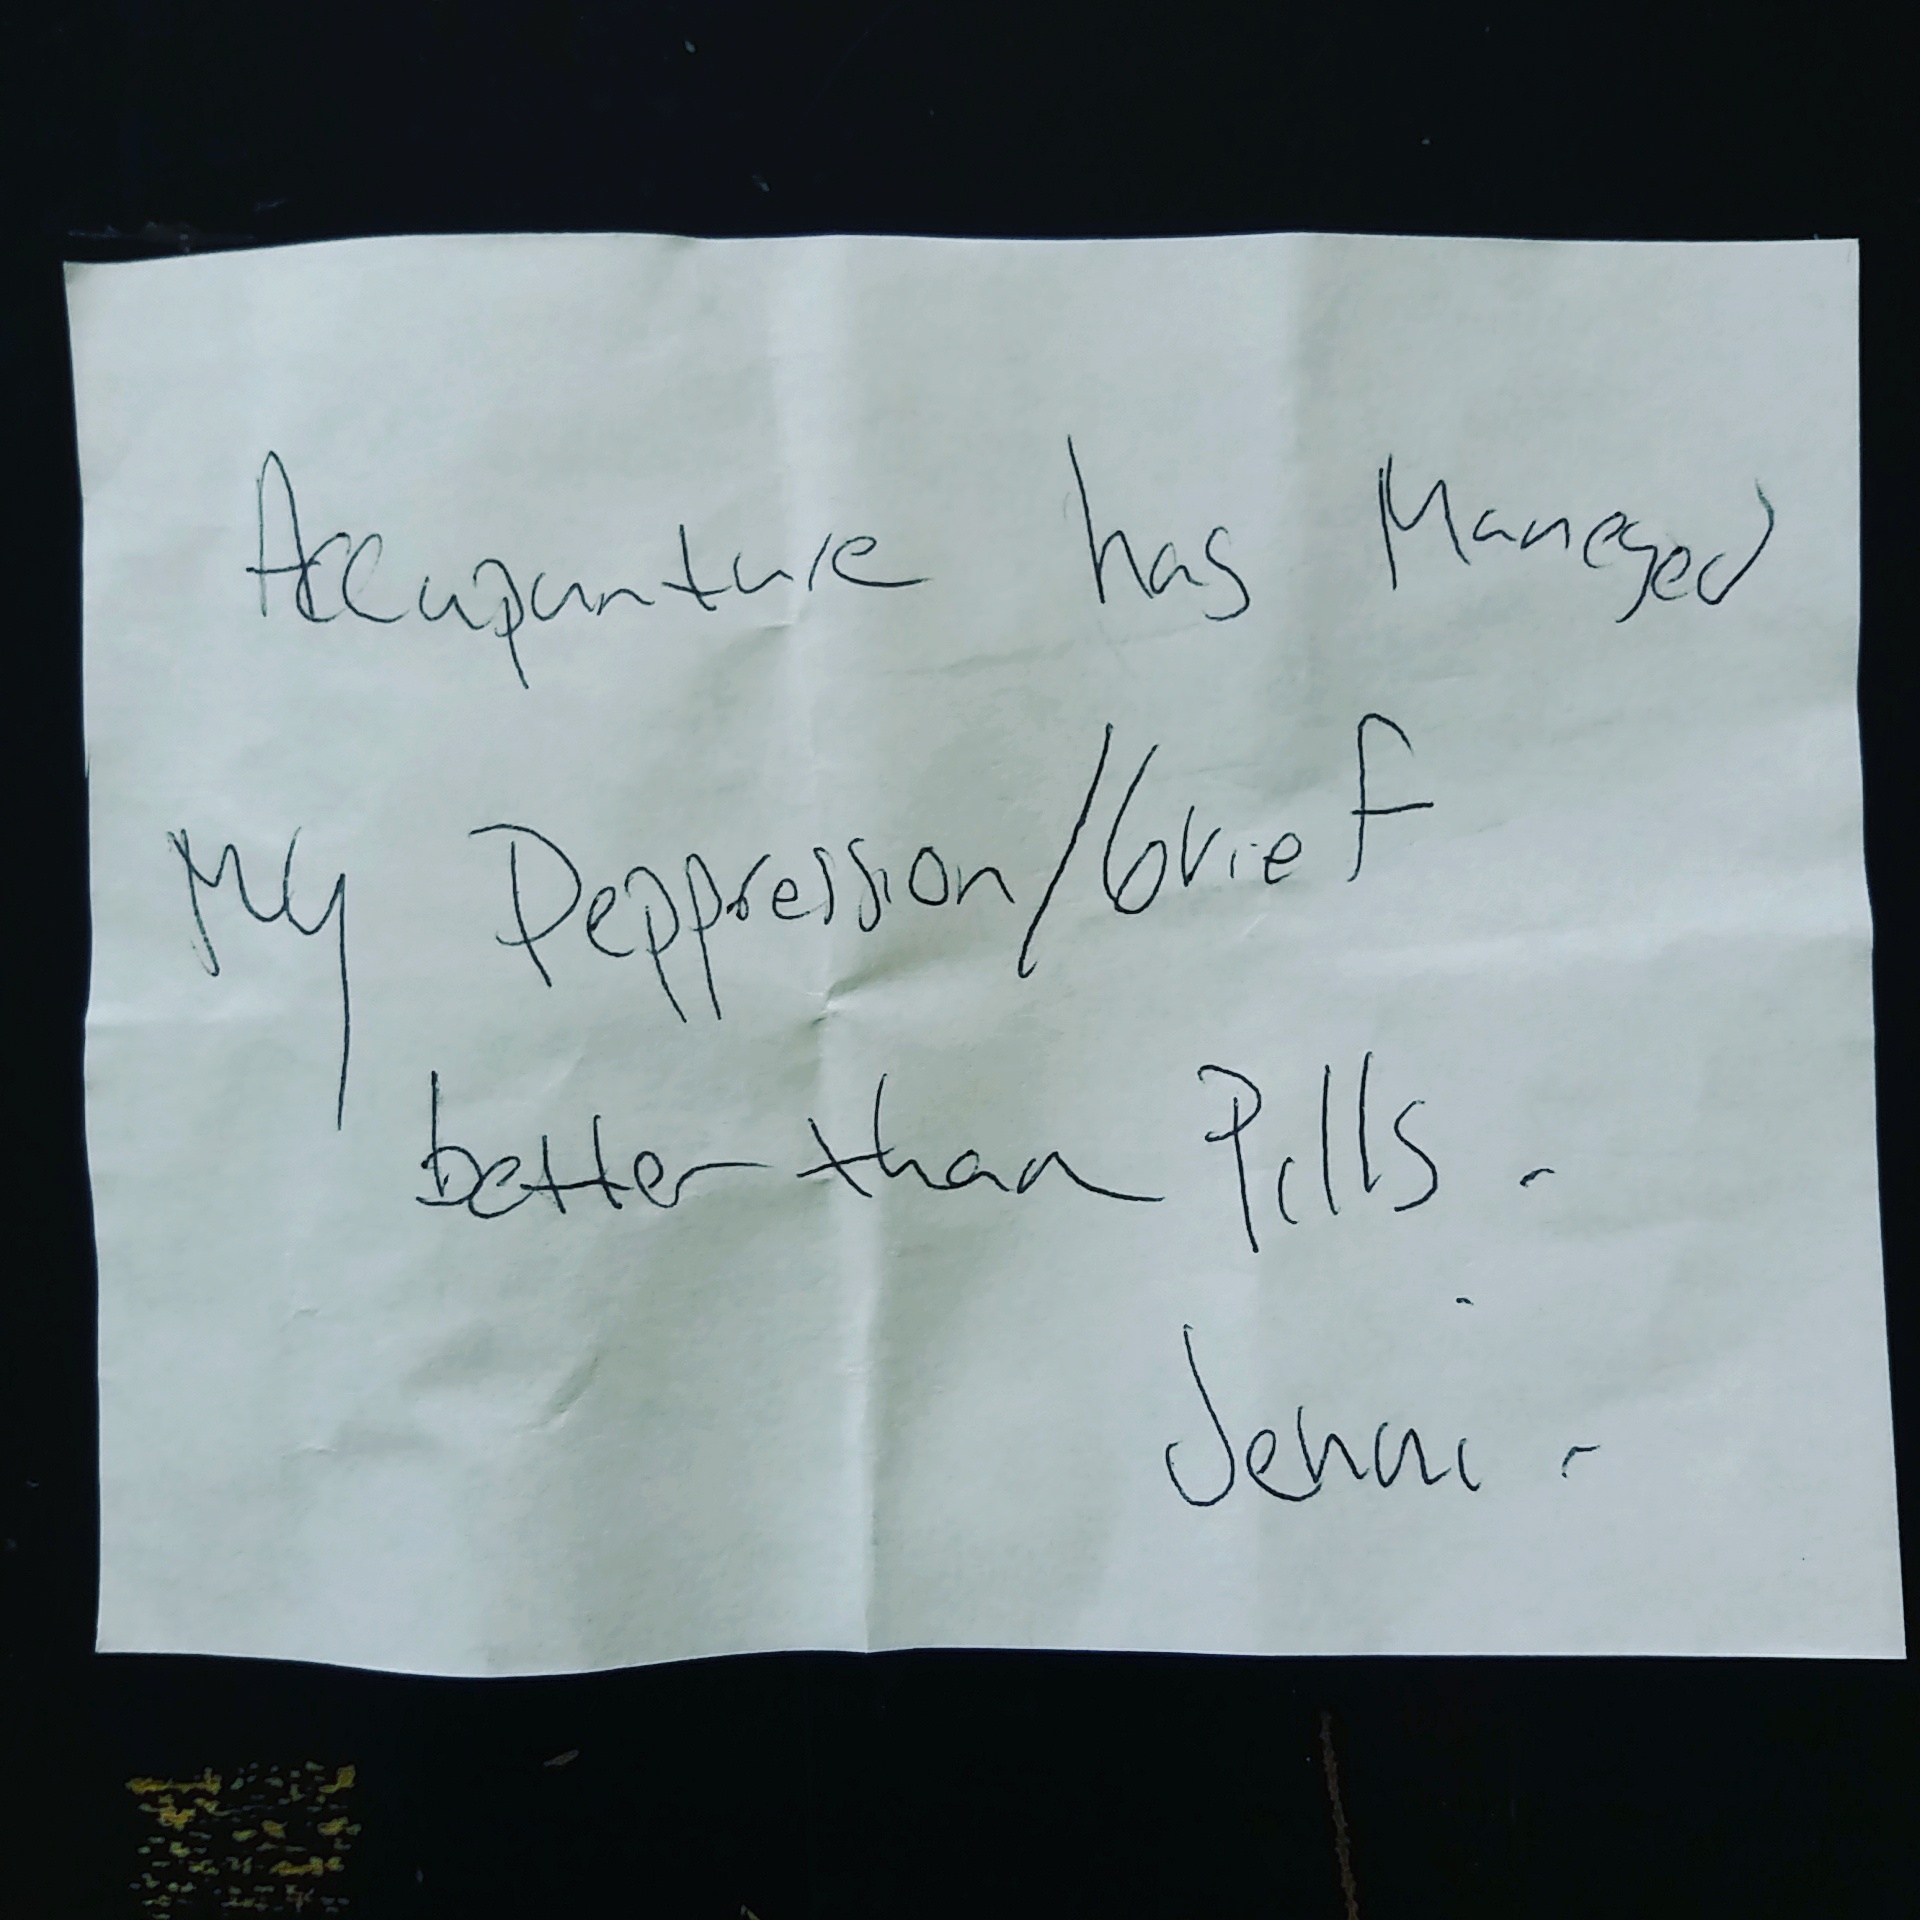 Accupunture has Maneged
My Deppression/Grief
better than Pills.
Jenni.